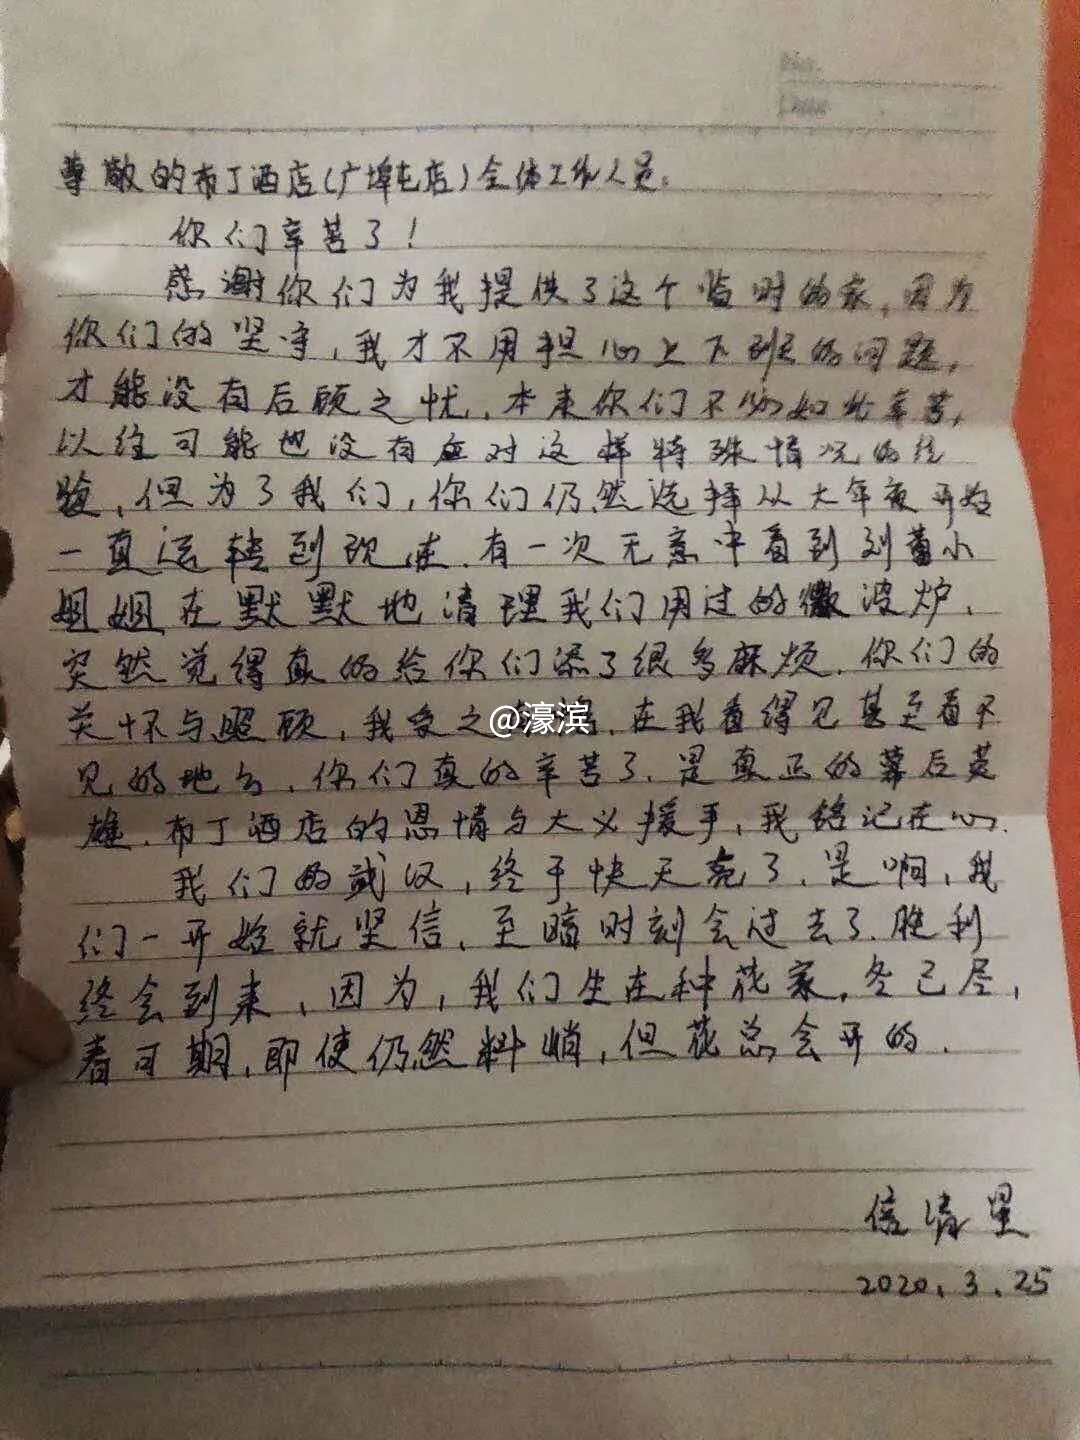 No.
Date
尊敬的布丁酒店(广埠屯店)全体工作人员:
你们辛苦了!
感谢你们为我提供了这个临时的家,因为
你们的坚守,我才不用担心上下班的问题,
才能没有后顾之忧.本来你们不必如此辛苦,
以往可能也没有应对这样特殊情况的经
验,但为了我们,你们仍然选择从大年夜开始
一直运转到现在.有一次无意中看到刘蕾小
姐姐在默默地清理我们用过的微波炉,
突然觉得真的给你们添了很多麻烦.你们的
关怀与照顾,我受之
@濠滨
.在我看得见甚至看不
见的地方,你们真的辛苦了.是真正的幕后英
雄.布丁酒店的恩情与大义援手,我铭记在心.
我们的武汉,终于快天亮了.是啊,我
们一开始就坚信,至暗时刻会过去了.胜利
终会到来,因为,我们生在种花家.冬已尽,
春可期,即使仍然料峭,但花总会开的.
倍清星
2020.3.25